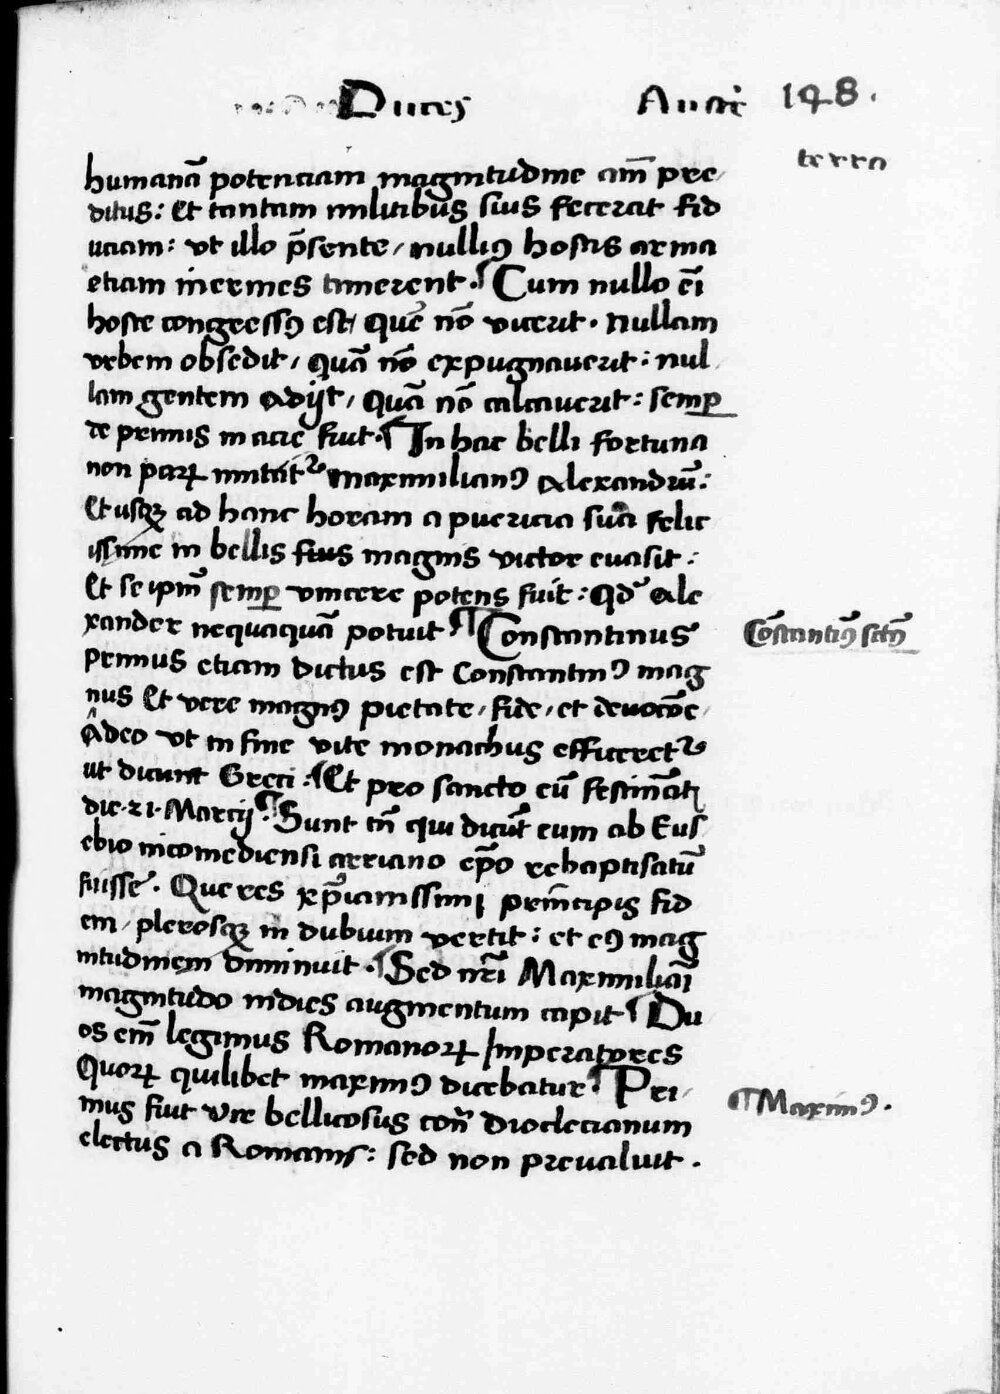 Duces Austrie 148.
terra
humanā potenciam magnitudine aīm pre
ditus: Et tantam militibus suis fecerat fid
uciam: ut illo p̄sente, nulliꝰ hostis arma
etiam inermes timerent. ¶ Cum nullo eī
hoste congressꝰ est, quē nō vicerit. Nullam
urbem obsedit, quā nō expugnauerit: nul
lam gentem adijt, quā nō calcauerit: semꝑ
de primis in acie fuit. ¶ In hac belli fortuna
non parꝝ imitatᷣ Maximilianꝰ Alexandrū:
Et usqꝫ ad hanc horam a puericia sua felic
issime in bellis suis magnis victor euasit:
Et se ipm̄ semꝑ vincere potens fuit: Qd̄ Ale
xander nequaquā potuit ¶ Constantinus
primus etiam dictus est Constantinꝰ mag
nus Et vere magnꝰ pietate, fide, et deuocōe,
Adeo ut in fine vite monachus efficeretᷣ
ut dicunt Greci: ¶ Et pro sancto eū festinātꝫ
die .21. Marcij ¶ Sunt tn̄ qui dicūt eum ab Eus
ebio nicomediensi arriano ep̄o rebaptisatū
fuisse. Que res xp̄ianissimi prīncipis fid
em, plerosqꝫ in dubium vertit: et eꝰ mag
nitudinem diminuit. ¶ Sed nr̄i Maximiliāi
magnitudo indies augmentum capit ¶ Du
os em̄ legimus Romanorꝝ Imperatores
Quorꝝ quilibet maximꝰ dicebatur ¶ Pri
mus fuit vir bellicosus cont̄ Dioclecianum
electus a Romanis: sed non preualuit.
Cōstantinꝰ sctꝰ
¶ Maximꝰ.